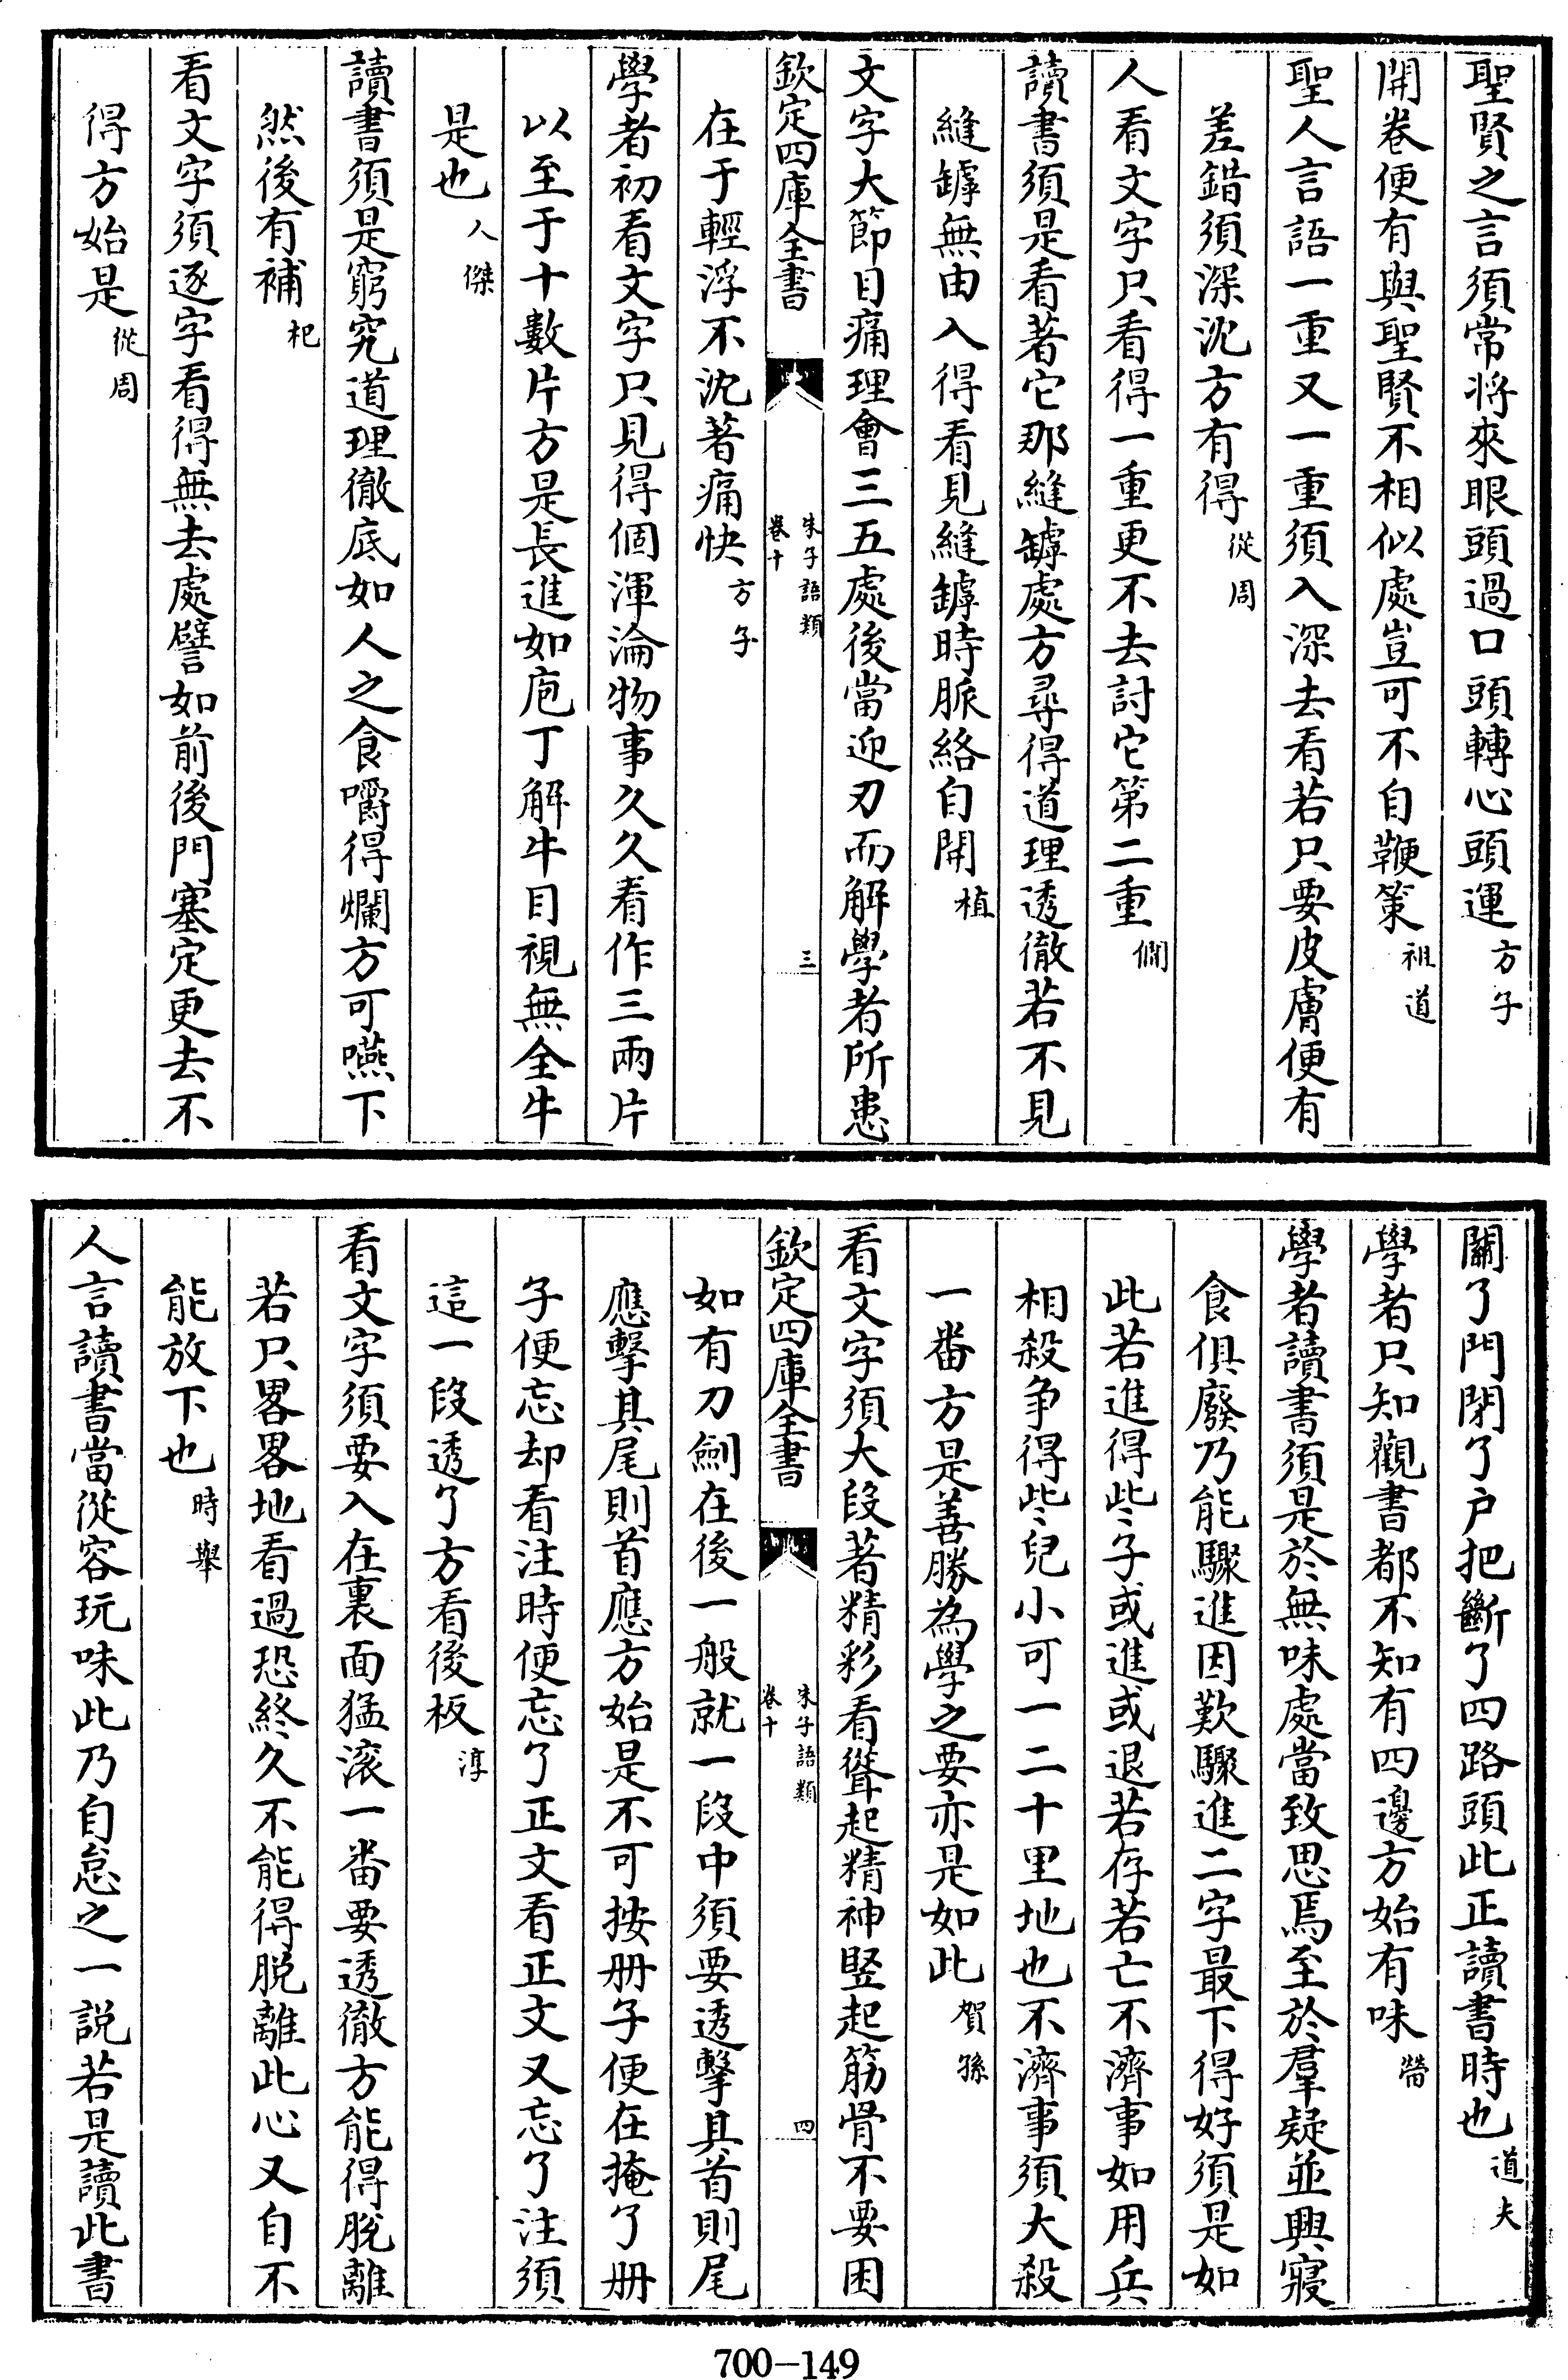 聖賢之言須常將來眼頭過口頭轉心頭運方子
開卷便有與聖賢不相似處豈可不自鞭策祖道
聖人言語一重又一重須入深去看若只要皮膚便有
差錯須深沈方有得從周
人看文字只看得一重更不去討它第二重僩
讀書須是看著它那縫罅處方尋得道理透徹若不見
縫罅無由入得看見縫罅時脈絡自開植
文字大節目痛理會三五處後當迎刃而解學者所患
欽定四庫全書
朱子語類
卷十
三
在于輕浮不沈著痛快方子
學者初看文字只見得個渾淪物事久久看作三兩片
以至于十數片方是長進如庖丁解牛目視無全牛
是也人傑
讀書須是窮究道理徹底如人之食嚼得爛方可嚥下
然後有補杞
看文字須逐字看得無去處譬如前後門塞定更去不
得方始是從周
關了門閉了户把斷了四路頭此正讀書時也道夫
學者只知觀書都不知有四邊方始有味㽦
學者讀書須是於無味處當致思焉至於羣疑並興寢
食俱廢乃能驟進因歎驟進二字最下得好須是如
此若進得些子或進或退若存若亡不濟事如用兵
相殺争得些兒小可一二十里地也不濟事須大殺
一番方是善勝為學之要亦是如此賀孫
看文字須大段著精彩看聳起精神竪起筋骨不要困
欽定四庫全書
朱子語類
卷十
四
如有刀劍在後一般就一段中須要透擊其首則尾
應擊其尾則首應方始是不可按册子便在掩了册
子便忘却看注時便忘了正文看正文又忘了注須
這一段透了方看後板淳
看文字須要入在裏面猛滚一番要透徹方能得脱離
若只畧畧地看過恐終久不能得脱離此心又自不
能放下也時舉
人言讀書當從容玩味此乃自怠之一説若是讀此書
700-149